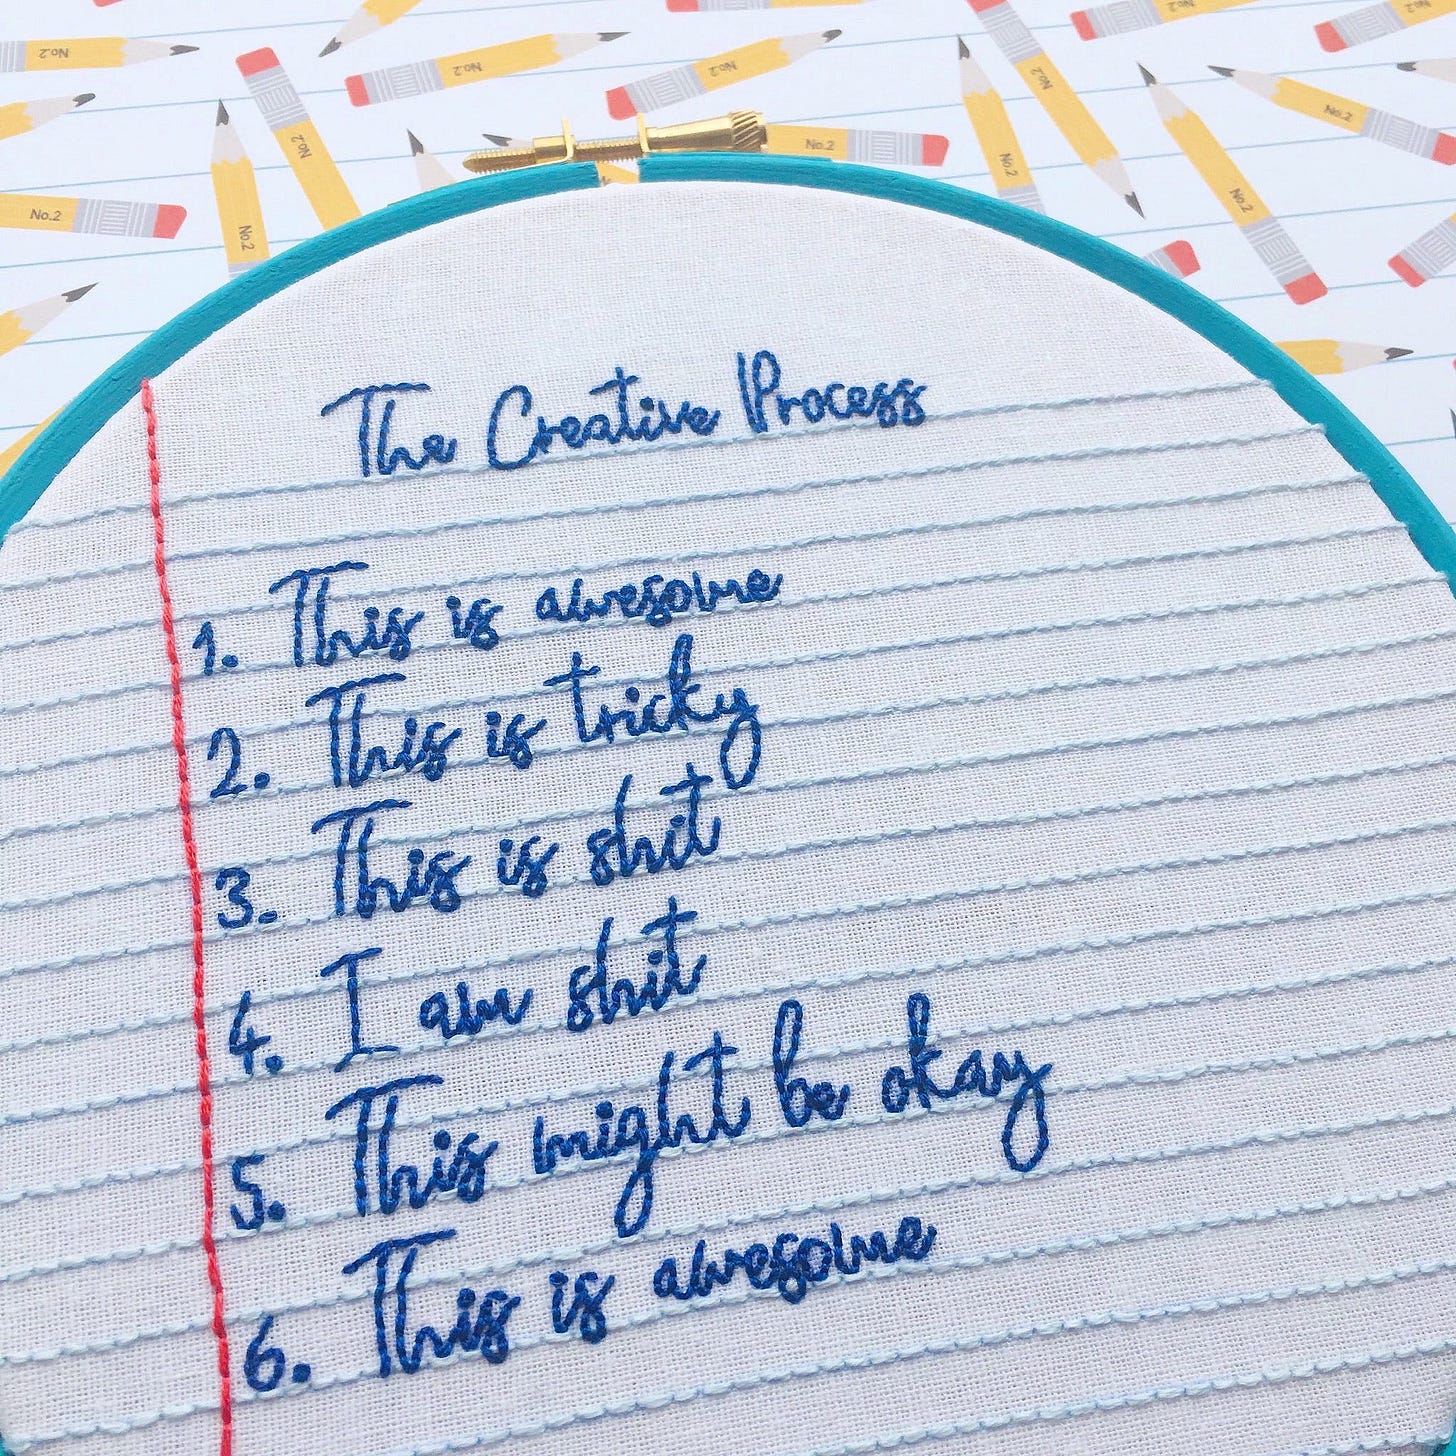 No.2
No.2
No.2
No.2
No.2
No.2
No.2
No.2
No.2
No.2
No.2
No.2
The Creative Process
1. This is awesome
2. This is tricky
3. This is shit
4. I am shit
5. This might be okay
6. This is awesome